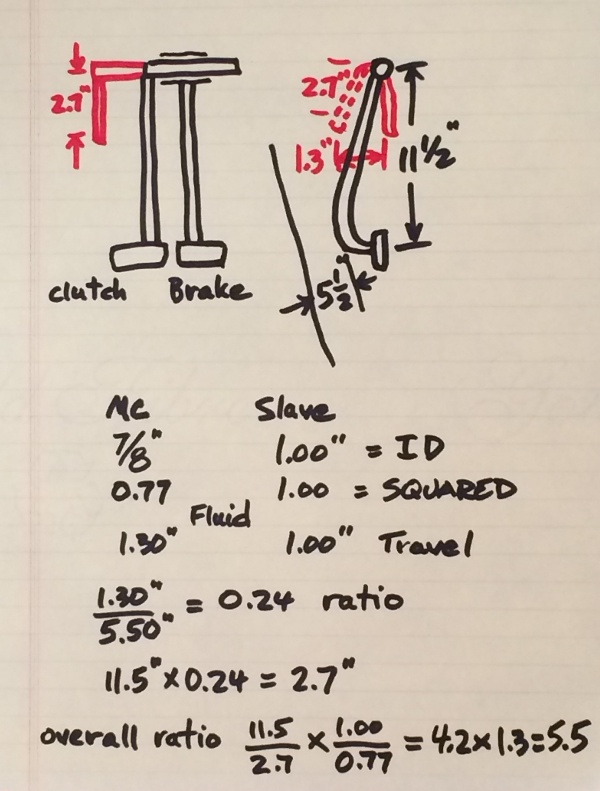 2.7"
2.7"
1.3"
11 1/2"
clutch Brake
5 1/2"
MC Slave
7/8" 1.00" = ID
0.77 1.00 = SQUARED
Fluid
1.30" 1.00" Travel
1.30"/5.50" = 0.24 ratio
11.5" x 0.24 = 2.7"
overall ratio 11.5/2.7 x 1.00/0.77 = 4.2x1.3=5.5